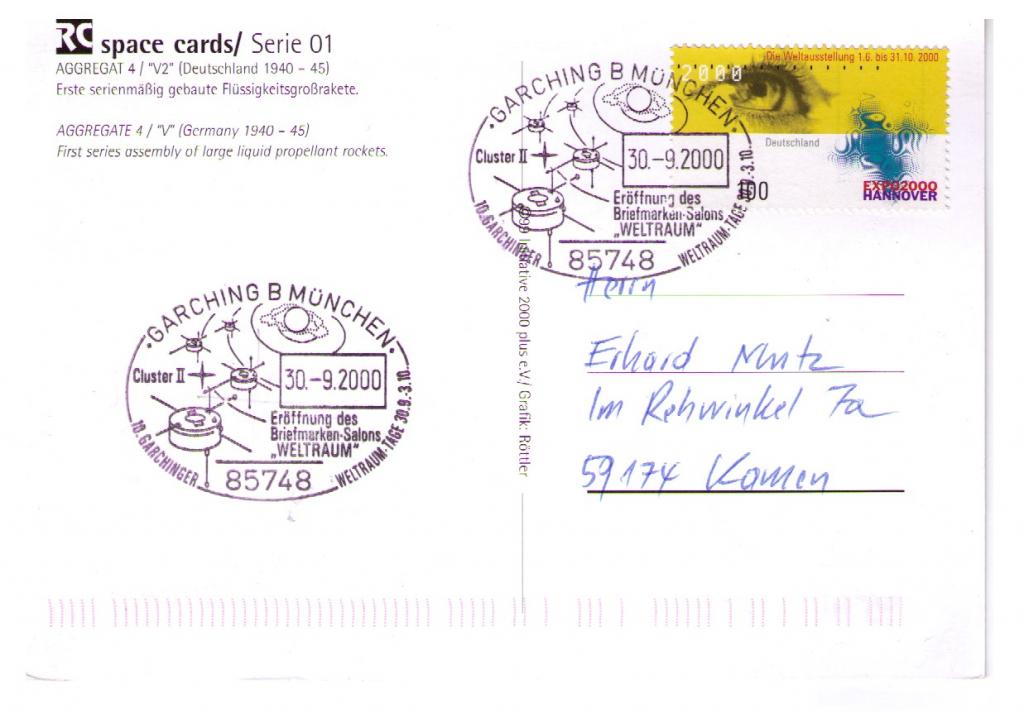 RC space cards/ Serie 01
AGGREGAT 4 / "V2" (Deutschland 1940 – 45)
Erste serienmäßig gebaute Flüssigkeitsgroßrakete.
AGGREGATE 4 / "V" (Germany 1940 – 45)
First series assembly of large liquid propellant rockets.
Die Weltausstellung 1.6. bis 31.10. 2000
2000
Deutschland
100
EXPO2000
HANNOVER
·GARCHING B MÜNCHEN·
Cluster II
30.-9.2000
Eröffnung des
Briefmarken-Salons
„WELTRAUM"
85748
10. GARCHINGER WELTRAUM-TAGE 30.9.-3.10.
·GARCHING B MÜNCHEN·
Cluster II
30.-9.2000
Eröffnung des
Briefmarken-Salons
„WELTRAUM"
85748
10. GARCHINGER WELTRAUM-TAGE 30.9.-3.10.
Initiative 2000 plus e.V./ Grafik: Röttler
Herrn
Erhard
Im Rehwinkel 7a
59174 Kamen